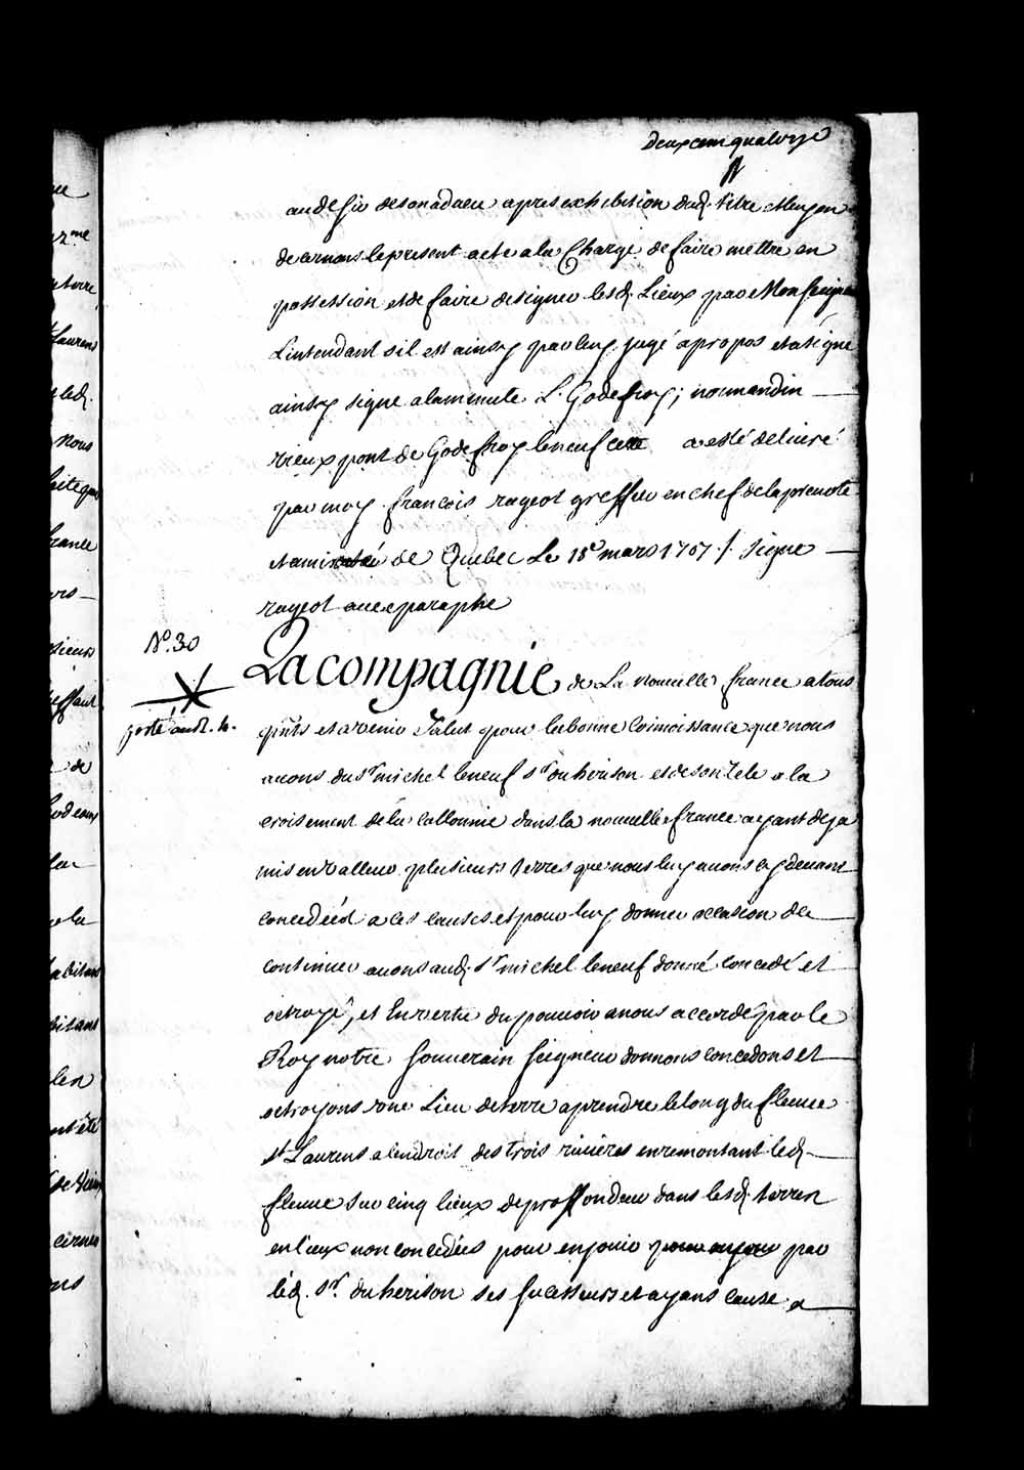 deux cent quatorze
au desir de son adveu apres exhibition dud. titre et luy en
decernons le present acte a la Charge de faire mettre en
possession et de faire designer lesd. Lieux par Monseigneur
Lintendant sil est ainsy par luy jugé apropos et a signé
ainsy signé a la minute L. Godefroy; normandin
rieux pont de Godefroy leneuf a esté delivré
par moy francois rageot greffier en chef de la prevoté
et amirauté de Quebec Le 18e mars 1707 /. signé
rageot avec paraphe
No. 30
La compagnie de La nouvelle france a tous
porté au R.
pnts et a venir Salut pour la bonne Connoissance que nous
avons du Sr michel leneuf Sr du herison et de son Zele a la
croisement de la Collonnie dans la nouvelle france ayant deja
mis en valleur plusieurs terres que nous luy avons cy devant
concedées a ces causes et pour luy donner occasion de
continuer avons aud. Sr michel leneuf donné concedé et
octroyé, et En vertu du pouvoir a nous accordé par le
Roy notre Souverain Seigneur donnons concedons et
octroyons une Lieu de terre a prendre le long du fleuve
St Laurens a lendroit des trois rivieres en remontant led.
fleuve sur cinq lieux de proffondeur dans lesd. terres
en lieux non concedées pour en jouir par
led. Sr. du herison ses successeurs et ayans cause a